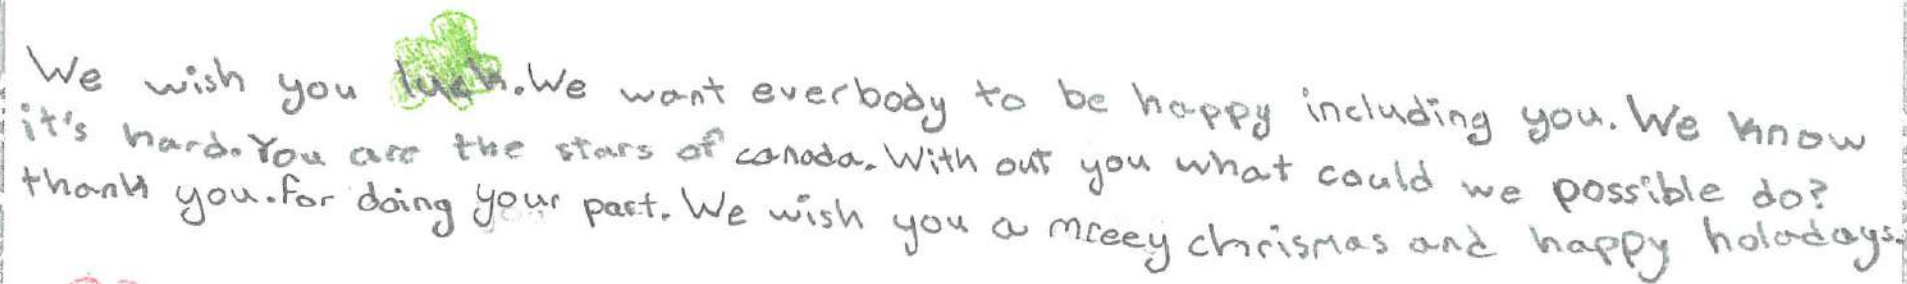 We wish you luck. We want everbody to be happy including you. We know
it's hard. You are the stars of canada. With out you what could we possible do?
thank you. for doing your part. We wish you a mreey chrismas and happy holodays.